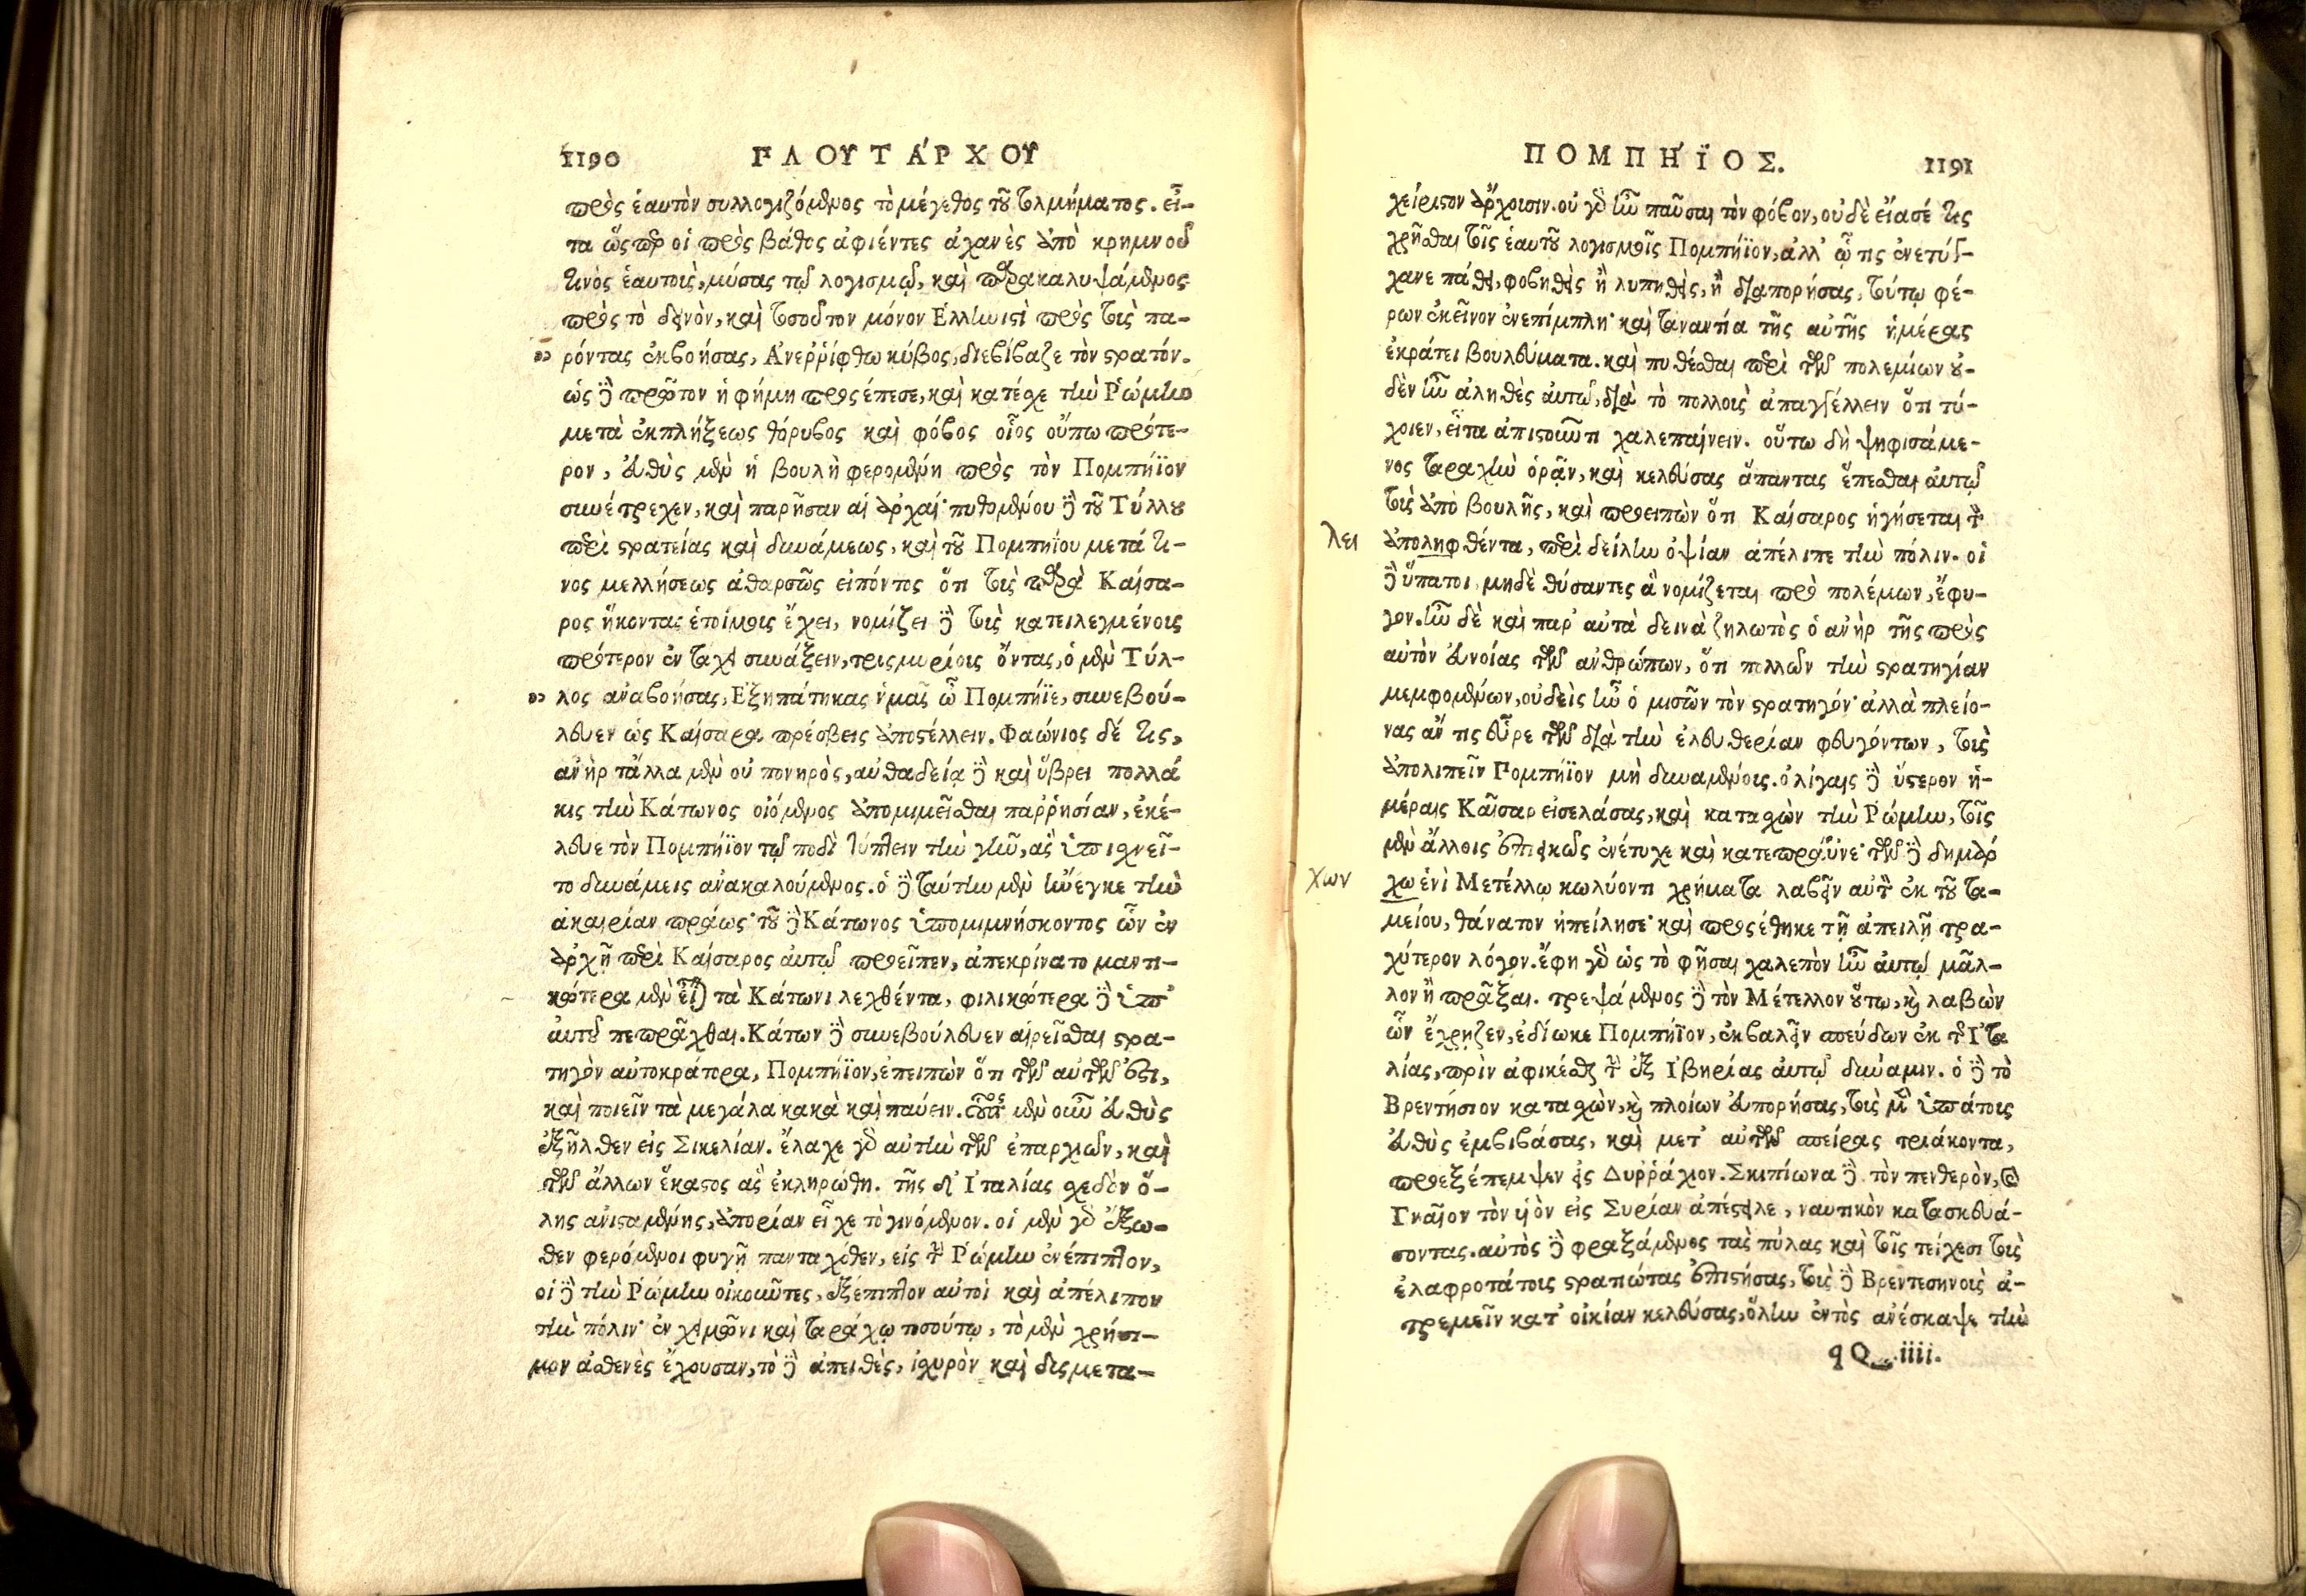 1190 ΠΛΟΥΤΑ΄ΡΧΟΥ
πρὸς ἑαυτὸν συλλογιζόμενος τὸ μέγεθος τοῦ τολμήματος. εἶ-
τα ὥςπερ οἱ πρὸς βάθος ἀφιέντες ἀχανὲς ἀπὸ κρημνοῦ
τινὸς ἑαυτοὺς, μύσας τῷ λογισμῷ, καὶ παρακαλυψάμενος
πρὸς τὸ δεινὸν, καὶ τοσοῦτον μόνον Ἑλληνιστὶ πρὸς τοὺς πα-
ρόντας ἐκβοήσας, Ἀνεῤῥίφθω κύβος, διεβίβαζε τὸν στρατόν.
ὡς δὲ πρῶτον ἡ φήμη προςέπεσε, καὶ κατέσχε τὴν Ῥώμην
μετὰ ἐκπλήξεως θόρυβος καὶ φόβος οἷος οὔπω πρότε-
ρον, εὐθὺς μὲν ἡ βουλὴ φερομένη πρὸς τὸν Πομπήϊον
συνέτρεχεν, καὶ παρῆσαν αἱ ἀρχαί· πυθομένου δὲ τοῦ Τύλλου
περὶ στρατείας καὶ δυνάμεως, καὶ τοῦ Πομπηΐου μετά τι-
νος μελλήσεως ἀθαρσῶς εἰπόντος ὅτι τοὺς παρὰ Καίσα-
ρος ἥκοντας ἑτοίμους ἔχει, νομίζει δὲ τοὺς κατειλεγμένους
πρότερον ἐν τάχει συνάξειν, τρισμυρίους ὄντας, ὁ μὲν Τύλ-
λος ἀναβοήσας, Ἐξηπάτηκας ἡμᾶς ὦ Πομπήϊε, συνεβού-
λευεν ὡς Καίσαρα πρέσβεις ἀποστέλλειν. Φαώνιος δέ τις,
ἀνὴρ τἄλλα μὲν οὐ πονηρὸς, αὐθαδείᾳ δὲ καὶ ὕβρει πολλά
κις τὴν Κάτωνος οἰόμενος ἀπομιμεῖσθαι παῤῥησίαν, ἐκέ-
λευε τὸν Πομπήϊον τῷ ποδὶ τύπτειν τὴν γῆν, ἃς ὑπισχνεῖ-
το δυνάμεις ἀνακαλούμενος. ὁ δὲ ταύτην μὲν ἤνεγκε τὴν
ἀκαιρίαν πράως· τοῦ δὲ Κάτωνος ὑπομιμνήσκοντος ὧν ἐν
ἀρχῇ περὶ Καίσαρος αὐτῷ προεῖπεν, ἀπεκρίνατο μαντι-
κώτερα μὲν εἶναι τὰ Κάτωνι λεχθέντα, φιλικώτερα δὲ ὑπ᾽
αὐτοῦ πεπρᾶχθαι. Κάτων δὲ συνεβούλευεν αἱρεῖσθαι στρα-
τηγὸν αὐτοκράτορα, Πομπήϊον, ἐπειπὼν ὅτι τῶν αὐτῶν ἐστι,
καὶ ποιεῖν τὰ μεγάλα κακὰ καὶ παύειν. οὗτος μὲν οὖν εὐθὺς
ἐξῆλθεν εἰς Σικελίαν. ἔλαχε γὰρ αὐτὴν τῶν ἐπαρχιῶν, καὶ
τῶν ἄλλων ἕκαστος ἃς ἐκληρώθη. τῆς δ᾽ Ἰταλίας σχεδὸν ὅ-
λης ἀνισταμένης, ἀπορίαν εἶχε τὸ γινόμενον. οἱ μὲν γὰρ ἔξω-
θεν φερόμενοι φυγῇ πανταχόθεν, εἰς τὴν Ῥώμην ἐνέπιπτον,
οἱ δὲ τὴν Ῥώμην οἰκοῦντες, ἐξέπιπτον αὐτοὶ καὶ ἀπέλιπον
τὴν πόλιν· ἐν χειμῶνι καὶ ταράχῳ τοσούτῳ, τὸ μὲν χρήσι-
μον ἀσθενὲς ἔχουσαν, τὸ δὲ ἀπειθὲς, ἰσχυρὸν καὶ δυςμετα-
ΠΟΜΠΗ΄ΪΟΣ. 1191
χείριστον ἄρχουσιν. οὐ γὰρ ἦν παῦσαι τὸν φόβον, οὐδὲ εἴασέ τις
χρῆσθαι τοῖς ἑαυτοῦ λογισμοῖς Πομπήϊον, ἀλλ᾽ ᾧ τις ἐνετύγ-
χανε πάθει, φοβηθεὶς ἢ λυπηθεὶς, ἢ διαπορήσας, τούτῳ φέ-
ρων ἐκεῖνον ἐνεπίμπλη· καὶ τἀναντία τῆς αὐτῆς ἡμέρας
ἐκράτει βουλεύματα. καὶ πυθέσθαι περὶ τῶν πολεμίων οὐ-
δὲν ἦν ἀληθὲς αὐτῷ, διὰ τὸ πολλοὺς ἀπαγγέλλειν ὅ τι τύ-
χοιεν, εἶτα ἀπιστοῦντι χαλεπαίνειν. οὕτω δὴ ψηφισάμε-
νος ταραχὴν ὁρᾷν, καὶ κελεύσας ἅπαντας ἕπεσθαι αὐτῷ
τοὺς ἀπὸ βουλῆς, καὶ προειπὼν ὅτι Καίσαρος ἡγήσεται τὸν
λει ἀποληφθέντα, περὶ δείλην ὀψίαν ἀπέλιπε τὴν πόλιν. οἱ
δὲ ὕπατοι μηδὲ θύσαντες ἃ νομίζεται πρὸ πολέμων, ἔφυ-
γον. ἦν δὲ καὶ παρ᾽ αὐτὰ δεινὰ ζηλωτὸς ὁ ἀνὴρ τῆς πρὸς
αὐτὸν εὐνοίας τῶν ἀνθρώπων, ὅτι πολλῶν τὴν στρατηγίαν
μεμφομένων, οὐδεὶς ἦν ὁ μισῶν τὸν στρατηγόν· ἀλλὰ πλείο-
νας ἄν τις εὗρε τῶν διὰ τὴν ἐλευθερίαν φευγόντων, τοὺς
ἀπολιπεῖν Πομπήϊον μὴ δυναμένους. ὀλίγαις δὲ ὕστερον ἡ-
μέραις Καῖσαρ εἰσελάσας, καὶ κατασχὼν τὴν Ῥώμην, τοῖς
μὲν ἄλλοις ἐπιεικῶς ἐνέτυχε καὶ κατεπράϋνε· τῶν δὲ δημάρ
χων χῳ ἑνὶ Μετέλλῳ κωλύοντι χρήματα λαβεῖν αὐτὸν ἐκ τοῦ τα-
μείου, θάνατον ἠπείλησε· καὶ προςέθηκε τῇ ἀπειλῇ τρα-
χύτερον λόγον. ἔφη γὰρ ὡς τὸ φῆσαι χαλεπὸν ἦν αὐτῷ μᾶλ-
λον ἢ πρᾶξαι. τρεψάμενος δὲ τὸν Μέτελλον οὕτω, καὶ λαβὼν
ὧν ἔχρῃζεν, ἐδίωκε Πομπήϊον, ἐκβαλεῖν σπεύδων ἐκ τῆς Ἰτα
λίας, πρὶν ἀφικέσθαι τὴν ἐξ Ἰβηρίας αὐτῷ δύναμιν. ὁ δὲ τὸ
Βρεντήσιον κατασχὼν, καὶ πλοίων εὐπορήσας, τοὺς μὲν ὑπάτους
εὐθὺς ἐμβιβάσας, καὶ μετ᾽ αὐτῶν σπείρας τριάκοντα,
προεξέπεμψεν εἰς Δυῤῥάχιον. Σκιπίωνα δὲ τὸν πενθερὸν, καὶ
Γναῖον τὸν υἱὸν εἰς Συρίαν ἀπέστειλε, ναυτικὸν κατασκευά-
σοντας. αὐτὸς δὲ φραξάμενος τὰς πύλας καὶ τοῖς τείχεσι τοὺς
ἐλαφροτάτους στρατιώτας ἐπιστήσας, τοὺς δὲ Βρεντεσηνοὺς ἀ-
τρεμεῖν κατ᾽ οἰκίαν κελεύσας, ὅλην ἐντὸς ἀνέσκαψε τὴν
qQ .iiii.